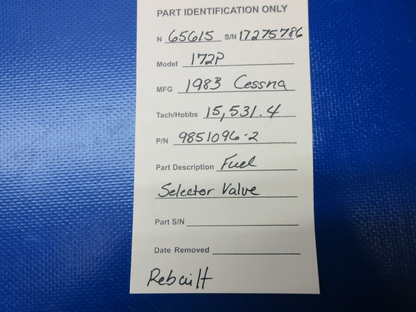 PART IDENTIFICATION ONLY
N 65615 S/N 17275786
Model 172P
MFG 1983 Cessna
Tach/Hobbs 15,531.4
P/N 9851096-2
Part Description Fuel
Selector Valve
Part S/N
Date Removed
Rebuilt